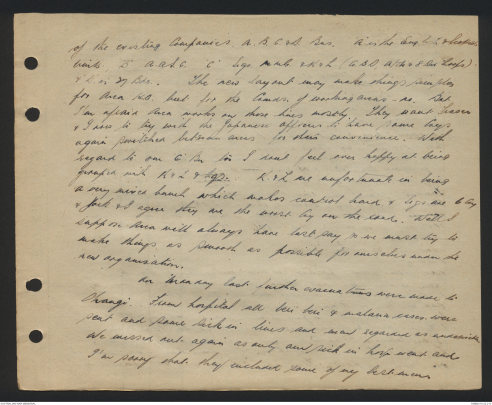 of the existing Companies. A. B. C. & D. Bns. A is the English &
units. B A.A.S.C. C
& L is 27 Bde. The new layout may make things simpler
for Area H.Q. but for the Comds. of working areas - no. But
I'm afraid Area works on those lines mostly. They want
& I was to try with the Japanese officers to have some things
again switched between areas for their convenience. With
regard to our C. Bn for I dont feel over happy at being
grouped with K & L & . K. & L are unfortunate in being
a very mixed bunch which makes control hard &
& Jack & I agree they are the worst by on the road. Well I
suppose Area will always have last say so we must try to
make things as smooth as possible for ourselves under the
new organisation.
On Monday last further evacuations were made to
Changi. From hospital all Beri Beri & malaria cases were
sent and some sick in lines and men regarded as
We missed out again as only our sick in hosp. went and
I'm sorry that they included some of my best men